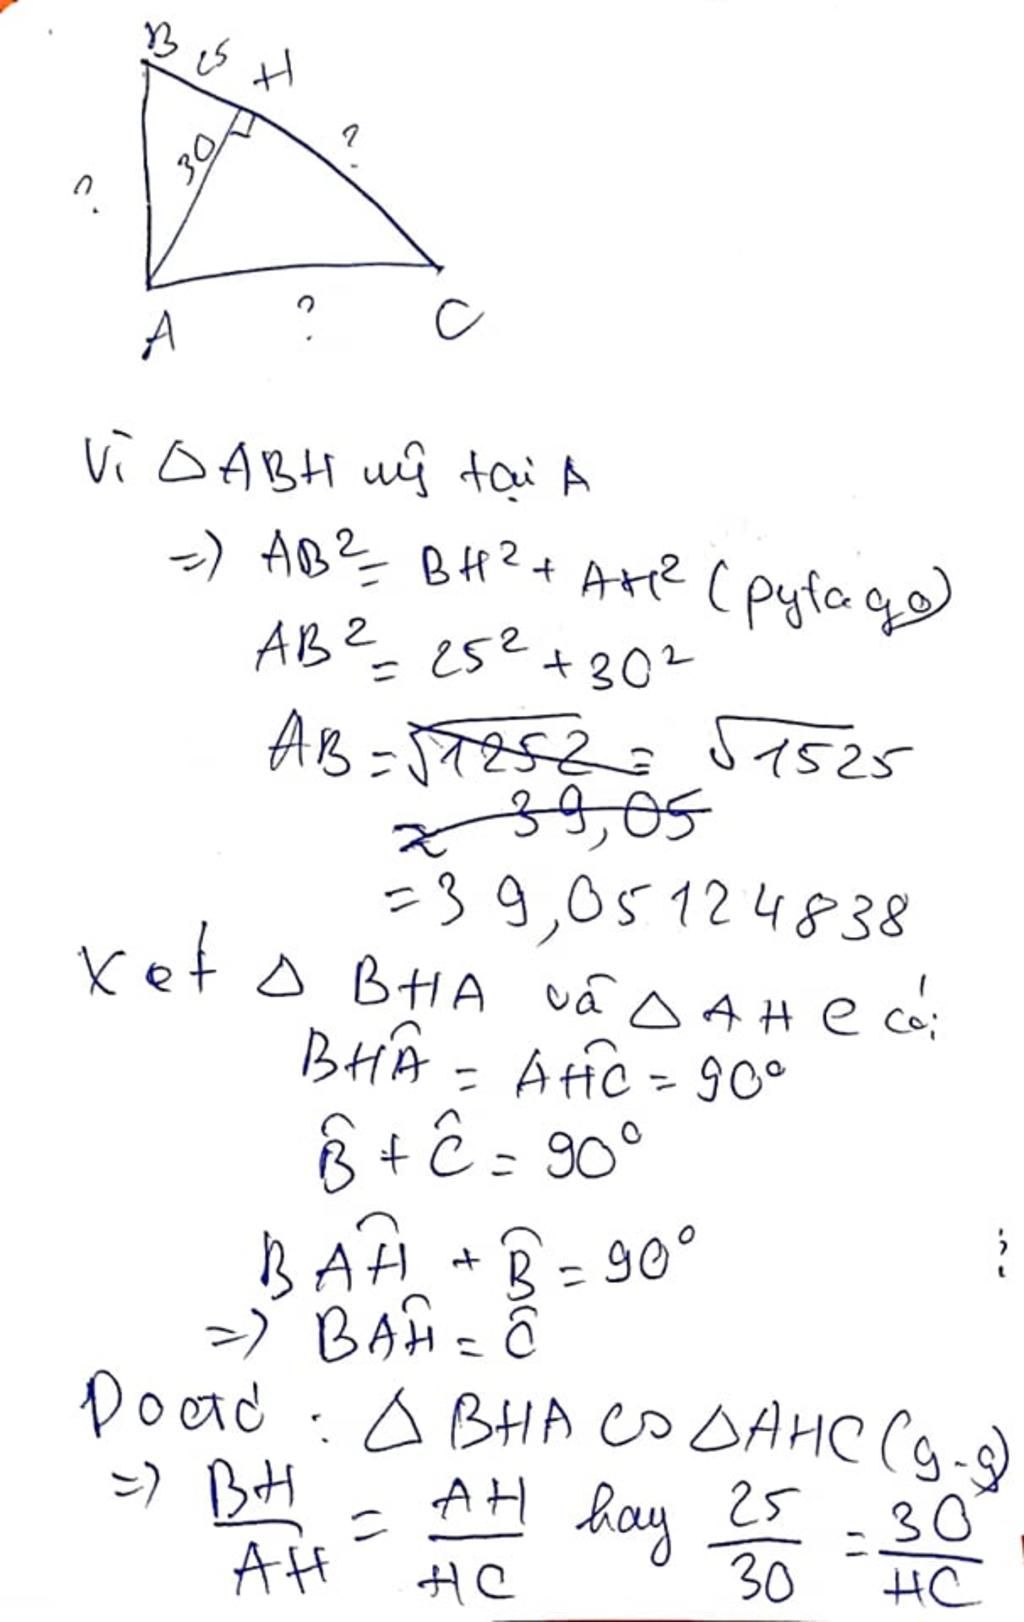 B 25 H
30 ?
?
A ? C
Vì △ABH vug tại A
=> AB² = BH² + AH² (pytago)
AB² = 25² + 30²
AB = √1252 = √1525
≈ 39,05
= 39,05124838
Xet △ BHA và △ AHC có:
BHÂ = AĤC = 90°
B̂ + Ĉ = 90°
BAĤ + B̂ = 90°
=> BAĤ = Ĉ
Do đó : △ BHA ∽ △AHC (g-g)
=> BH/AH = AH/HC hay 25/30 = 30/HC